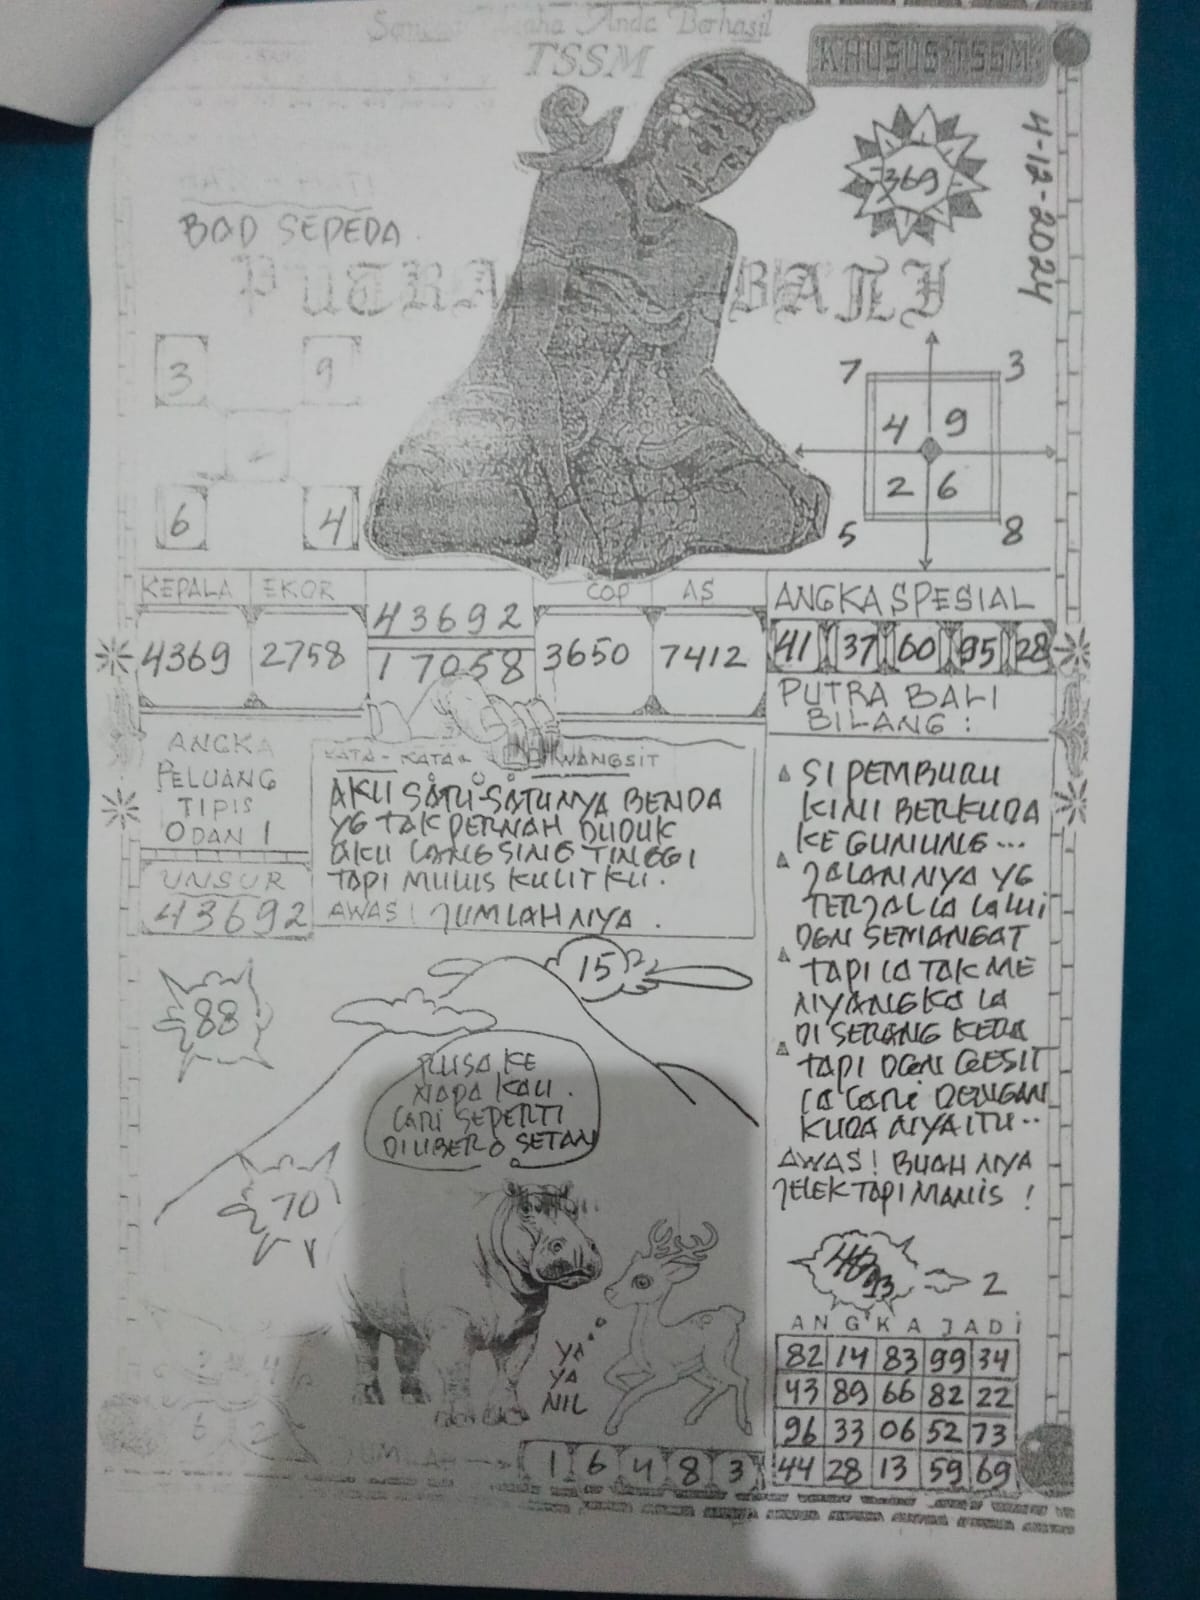 Anda Berhasil
TSSM
KHUSUS TSSM
4-12-2024
369
BOD SEPEDA
PUTRA BALI
3 9
6 4
7 3
4 9
2 6
5 8
KEPALA EKOR COP AS
43692
4369 2758 17058 3650 7412
ANGKA SPESIAL
41 37 60 95 28
ANGKA
PELUANG
TIPIS
0 DAN 1
UNSUR
43692
KATA-KATA WANGSIT
AKU SATU-SATUNYA BENDA
YG TAK PERNAH DUDUK
AKU LANGSING TINGGI
TAPI MULUS KULIT KU.
AWAS! JUMLAHNYA.
PUTRA BALI
BILANG:
SI PEMBURU
KINI BERKUDA
KE GUNUNG...
JALANNYA YG
TERJAL IA LALUI
DGN SEMANGAT
TAPI IA TAK ME
NYANGKA IA
DI SERANG KERA
TAPI DGN GESIT
IA LARI DENGAN
KUDA NYA ITU..
AWAS! BUAH NYA
JELEK TAPI MANIS!
88
15
70
RUSA KE
NAPA KAU.
LARI SEPERTI
DIUBER2 SETAN
YA
YA
NIL
2
ANGKA JADI
82 14 83 99 34
43 89 66 82 22
96 33 06 52 73
44 28 13 59 69
JUMLAH
1 6 4 8 3